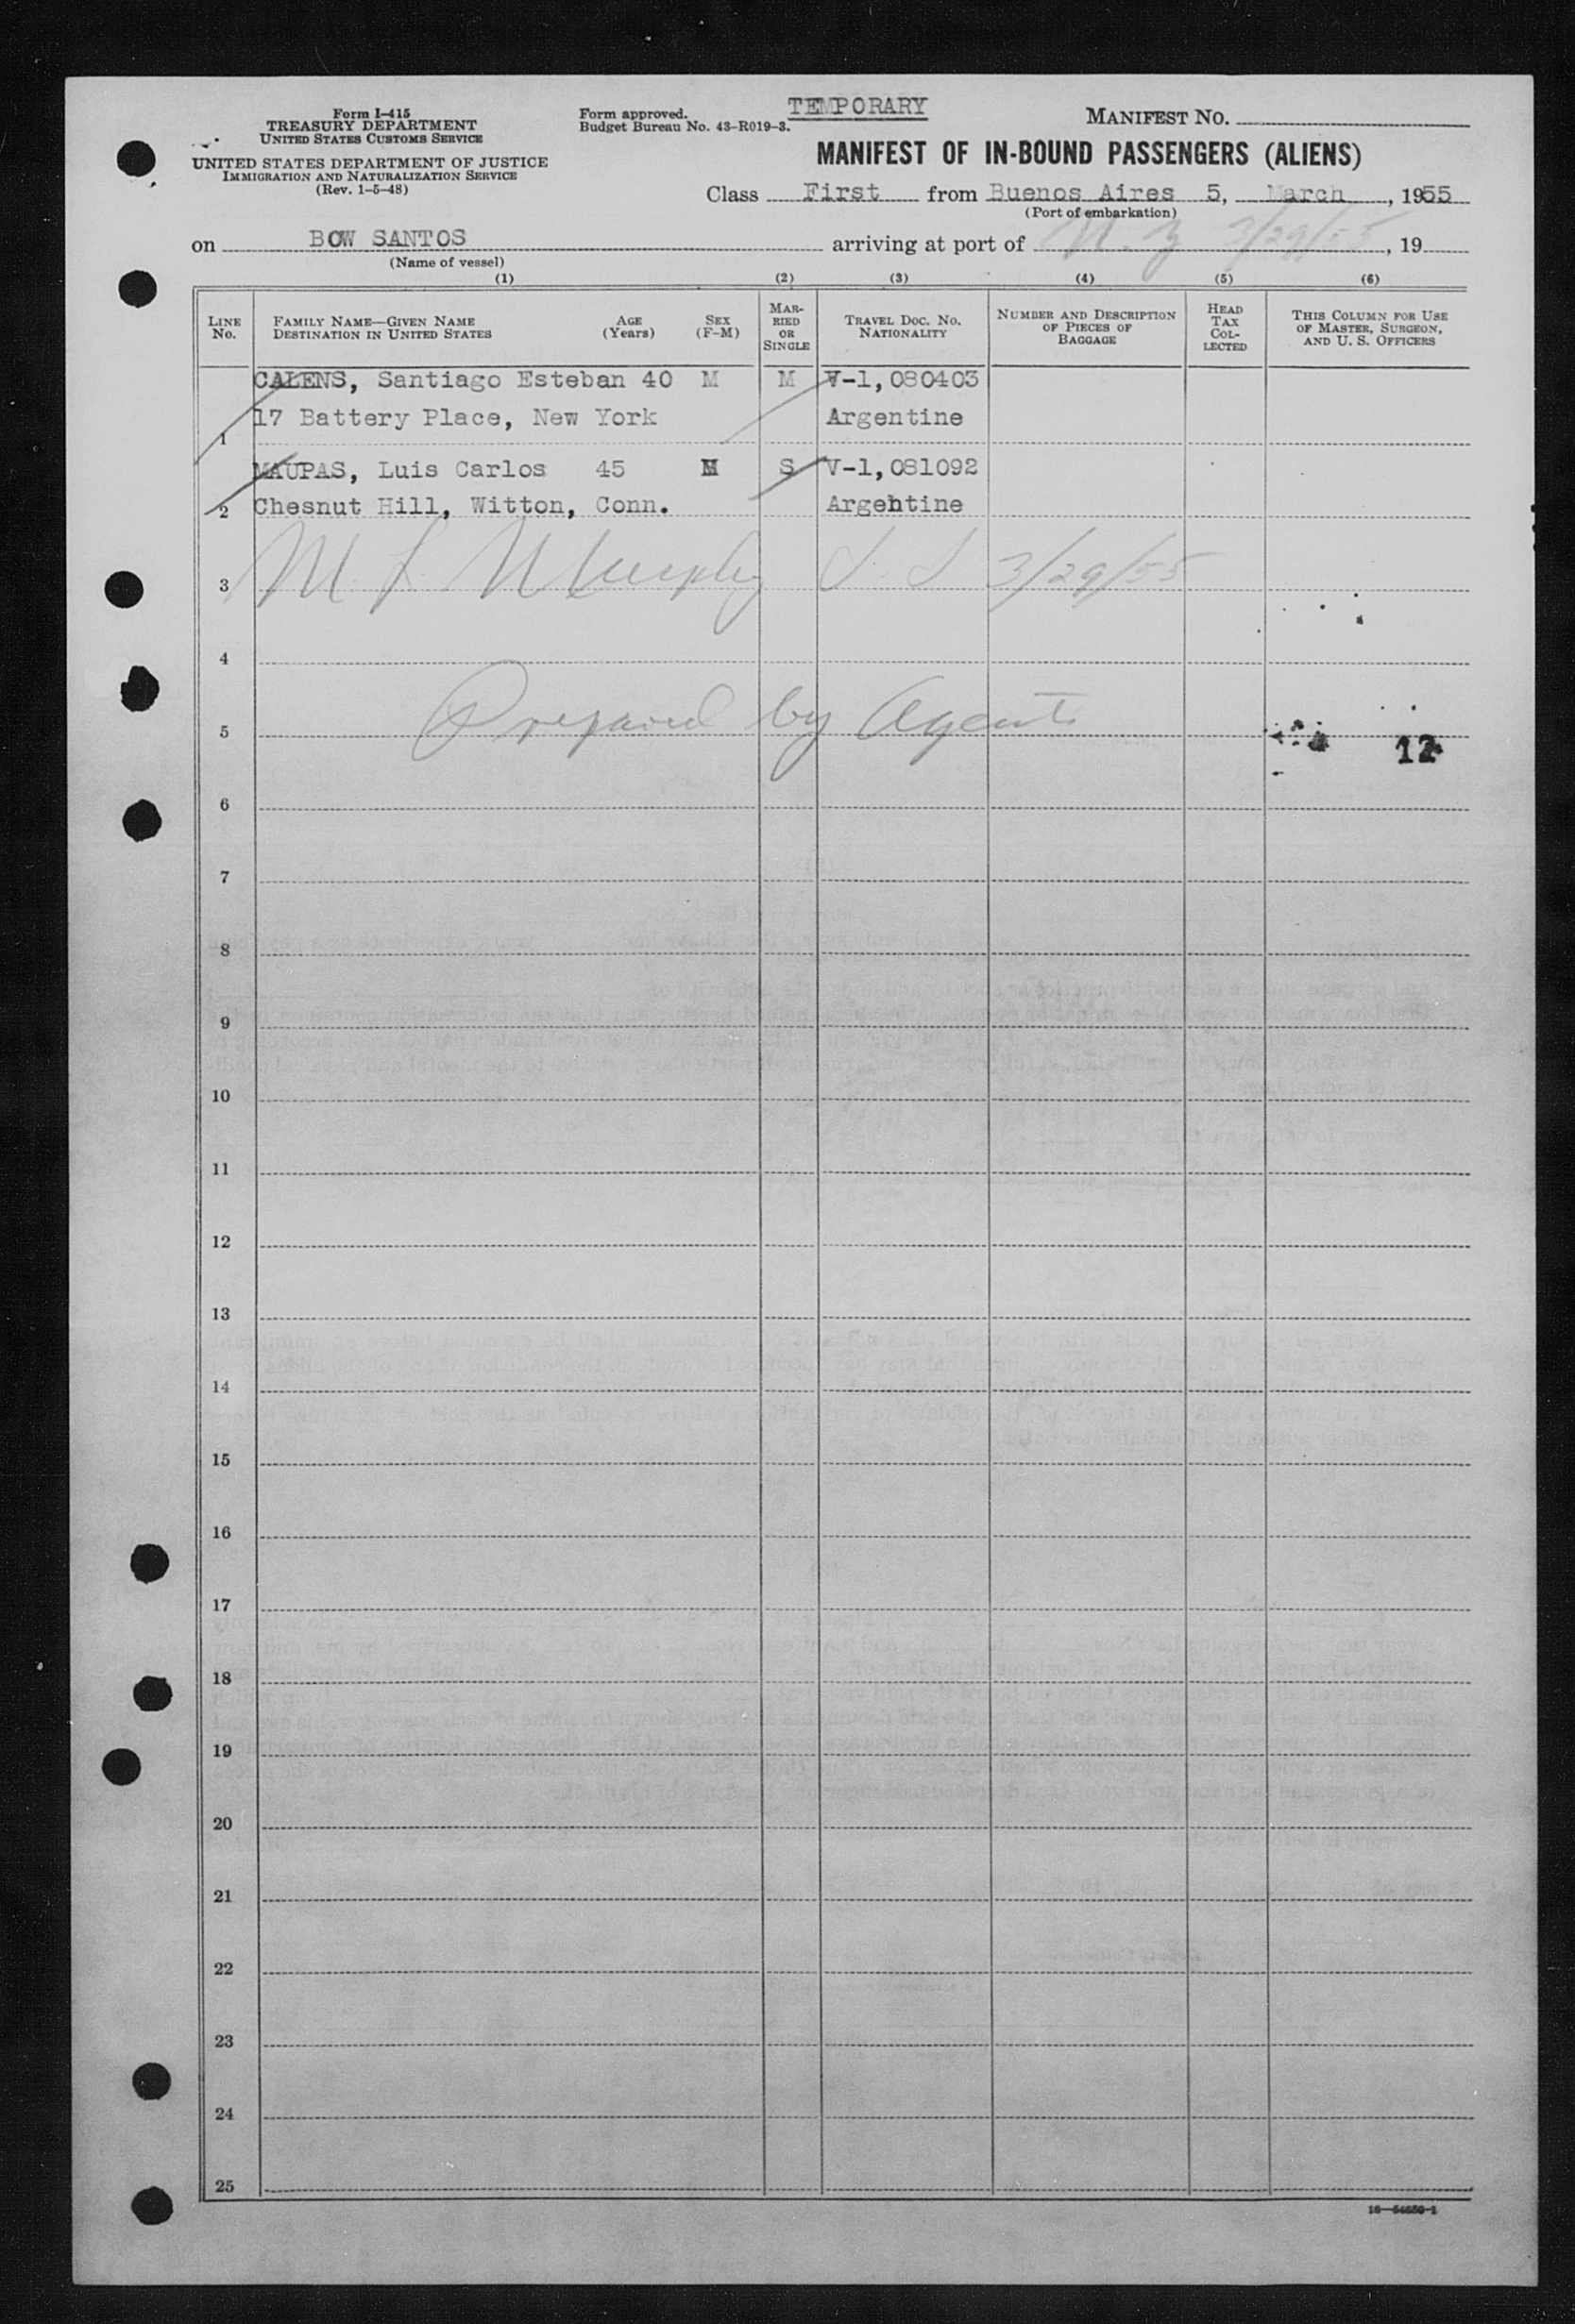 TEMPORARY
Form I-415
TREASURY DEPARTMENT
UNITED STATES CUSTOMS SERVICE
UNITED STATES DEPARTMENT OF JUSTICE
IMMIGRATION AND NATURALIZATION SERVICE
(Rev. 1-5-48)
Form approved.
Budget Bureau No. 43-R019-3.
MANIFEST NO.
MANIFEST OF IN-BOUND PASSENGERS (ALIENS)
Class First from Buenos Aires 5, March, 1955
(Port of embarkation)
on BOW SANTOS arriving at port of N. Y 3/29/55, 19
(Name of vessel)
(1) (2) (3) (4) (5) (6)
LINE No.
FAMILY NAME—GIVEN NAME
DESTINATION IN UNITED STATES
AGE (Years)
SEX (F-M)
MARRIED OR SINGLE
TRAVEL DOC. NO. NATIONALITY
NUMBER AND DESCRIPTION OF PIECES OF BAGGAGE
HEAD TAX COLLECTED
THIS COLUMN FOR USE OF MASTER, SURGEON, AND U. S. OFFICERS
CALENS, Santiago Esteban 40 M M V-1,080403
17 Battery Place, New York Argentine
1
MAUPAS, Luis Carlos 45 M S V-1,081092
2 Chesnut Hill, Witton, Conn. Argentine
3 Murphy 3/29/55
4
5 Prepared by Agents
12
6
7
8
9
10
11
12
13
14
15
16
17
18
19
20
21
22
23
24
25